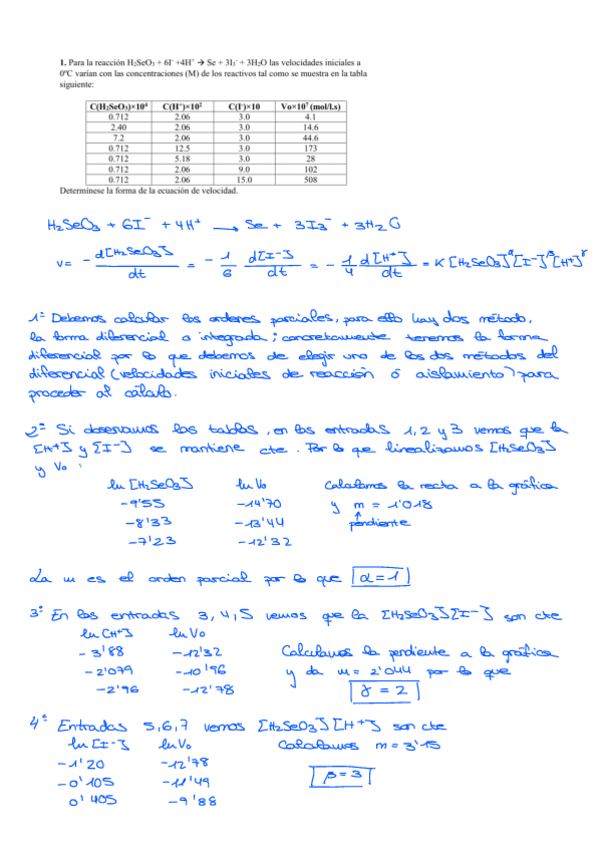 1. Para la reacción H₂SeO₃ + 6I⁻ +4H⁺ → Se + 3I₃⁻ + 3H₂O las velocidades iniciales a
0ºC varían con las concentraciones (M) de los reactivos tal como se muestra en la tabla
siguiente:
C(H₂SeO₃)×10⁴ C(H⁺)×10² C(I⁻)×10 Vo×10⁷ (mol/l.s)
0.712 2.06 3.0 4.1
2.40 2.06 3.0 14.6
7.2 2.06 3.0 44.6
0.712 12.5 3.0 173
0.712 5.18 3.0 28
0.712 2.06 9.0 102
0.712 2.06 15.0 508
Determínese la forma de la ecuación de velocidad.
H₂SeO₃ + 6I⁻ + 4H⁺ → Se + 3I₃⁻ + 3H₂O
v = - d[H₂SeO₃]/dt = - 1/6 d[I⁻]/dt = - 1/4 d[H⁺]/dt = K [H₂SeO₃]^α [I⁻]^β [H⁺]^γ
1º Debemos calcular los ordenes parciales, para ello hay dos método,
la forma diferencial o integrada; concretamente tenemos la forma
diferencial por lo que debemos de elegir uno de los dos métodos del
diferencial (velocidades iniciales de reacción ó aislamiento) para
proceder al cálculo.
2º Si observamos las tablas, en las entradas 1, 2 y 3 vemos que la
[H+] y [I-] se mantiene cte. Por lo que linealizamos [H₂SeO₃]
y Vo :
ln [H₂SeO₃] ln Vo Calculamos la recta a la gráfica
-9'55 -14'70 y m = 1'018
-8'33 -13'44 pendiente
-7'23 -12'32
La m es el orden parcial por lo que α = 1
3º En las entradas 3, 4, 5 vemos que la [H₂SeO₃][I-] son cte
ln [H+] ln Vo
-3'88 -12'32 Calculamos la pendiente a la gráfica
-2'079 -10'96 y da m = 2'044 por lo que
-2'96 -12'78 γ = 2
4º Entradas 5, 6, 7 vemos [H₂SeO₃][H+] son cte
ln [I-] ln Vo Calculamos m = 3'15
-1'20 -12'78
-0'105 -11'49 β = 3
0'405 -9'88